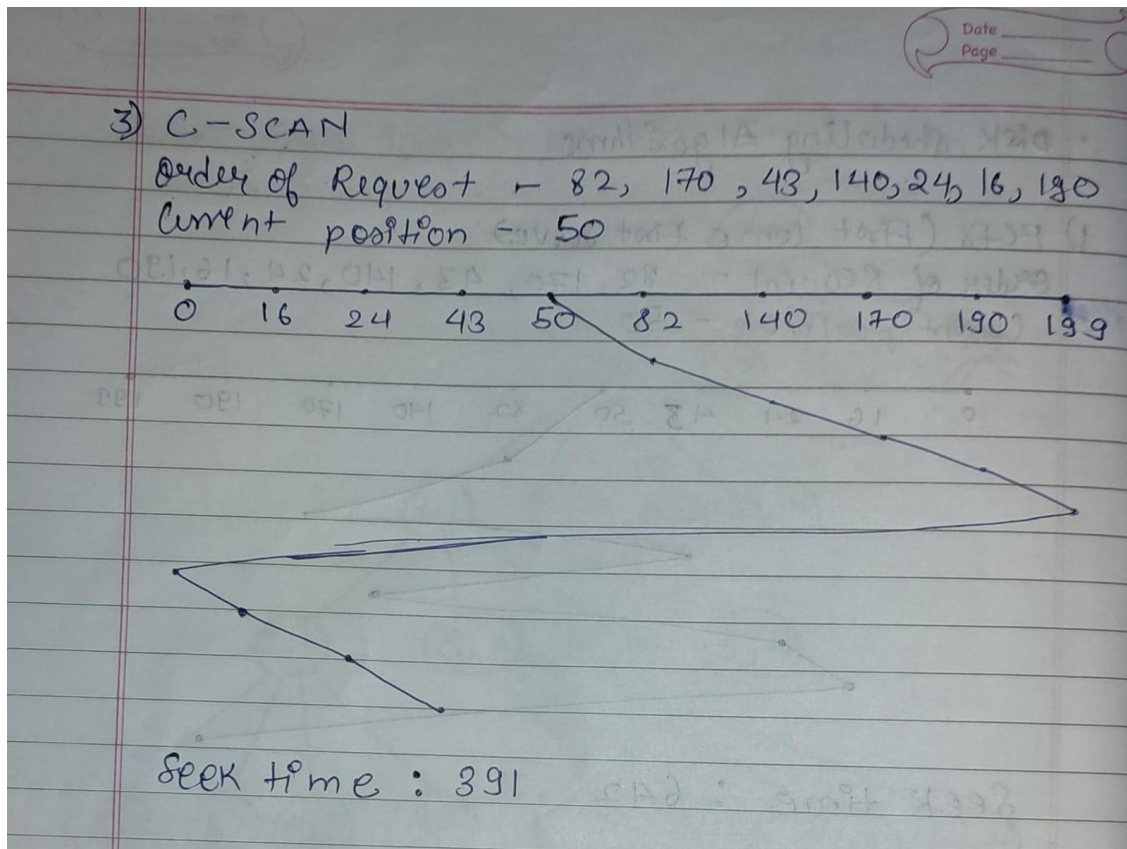 Date
Page
3) C-SCAN
Order of Request - 82, 170, 43, 140, 24, 16, 190
Current position - 50
0 16 24 43 50 82 140 170 190 199
Seek time : 391